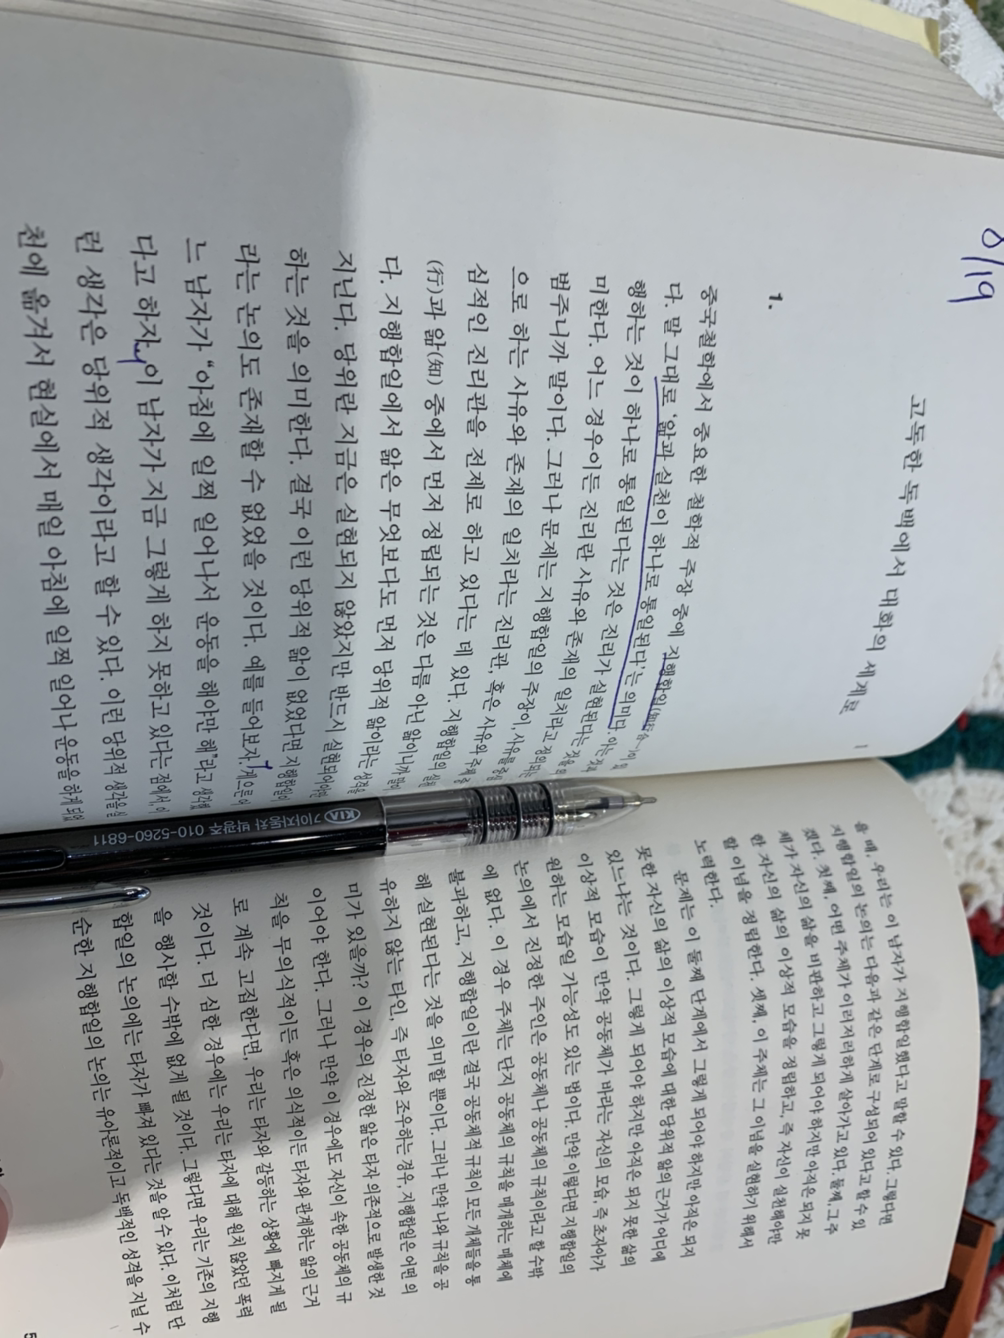 8/19
고독한 독백에서 대화의 세계로
1.
중국철학에서 중요한 철학적 주장 중에 지행합일
다. 말 그대로 '앎과 실천이 하나로 통일된다'는 의미다.
행하는 것이 하나로 통일된다는 것은 진리가 실현된다는 것을
미한다. 어느 경우이든 진리란 사유와 존재의 일치라고 정의되는
범주니까 말이다. 그러나 문제는 지행합일의 주장이, 사유를 중심
으로 하는 사유와 존재의 일치라는 진리관, 혹은 사유와 주체 중
심적인 진리관을 전제로 하고 있다는 데 있다. 지행합일의 실천
(行)과 앎(知) 중에서 먼저 정립되는 것은 다름 아닌 앎이니까 말이
다. 지행합일에서 앎은 무엇보다도 먼저 당위적 앎이라는 성격을
지닌다. 당위란 지금은 실현되지 않았지만 반드시 실현되어야만
하는 것을 의미한다. 결국 이런 당위적 앎이 없었다면 지행합일이
라는 논의도 존재할 수 없었을 것이다. 예를 들어보자. 게으른 어
느 남자가 "아침에 일찍 일어나서 운동을 해야만 해"라고 생각했
다고 하자. 이 남자가 지금 그렇게 하지 못하고 있다는 점에서, 이
런 생각은 당위적 생각이라고 할 수 있다. 이런 당위적 생각을 실
천에 옮겨서 현실에서 매일 아침에 일찍 일어나 운동을 하게 되었
1
을 때, 우리는 이 남자가 지행합일했다고 말할 수 있다. 그렇다면
지행합일의 논의는 다음과 같은 단계로 구성되어 있다고 할 수 있
겠다. 첫째, 어떤 주체가 이러저러하게 살아가고 있다. 둘째, 그 주
체가 자신의 삶을 비판하고 그렇게 되어야 하지만 아직은 되지 못
한 자신의 삶의 이상적 모습을 정립하고, 즉 자신이 실천해야만
할 이념을 정립한다. 셋째, 이 주체는 그 이념을 실현하기 위해서
노력한다.
문제는 이 둘째 단계에서 그렇게 되어야 하지만 아직은 되지
못한 자신의 삶의 이상적 모습에 대한 당위적 앎의 근거가 어디에
있느냐는 것이다. 그렇게 되어야 하지만 아직은 되지 못한 삶의
이상적 모습이 만약 공동체가 바라는 자신의 모습, 즉 초자아가
원하는 모습일 가능성도 있는 법이다. 만약 이렇다면 지행합일의
논의에서 진정한 주인은 공동체나 공동체의 규칙이라고 할 수밖
에 없다. 이 경우 주체는 단지 공동체의 규칙을 매개하는 매체에
불과하고, 지행합일이란 결국 공동체적 규칙이 모든 개체들을 통
해 실현된다는 것을 의미할 뿐이다. 그러나 만약 나와 규칙을 공
유하지 않는 타인, 즉 타자와 조우하는 경우, 지행합일은 어떤 의
미가 있을까? 이 경우의 진정한 앎은 타자 의존적으로 발생한 것
이어야 한다. 그러나 만약 이 경우에도 자신이 속한 공동체의 규
칙을 무의식적이든 혹은 의식적이든 타자와 관계하는 앎의 근거
로 계속 고집한다면, 우리는 타자와 갈등하는 상황에 빠지게 될
것이다. 더 심한 경우에는 우리는 타자에 대해 원치 않았던 폭력
을 행사할 수밖에 없게 될 것이다. 그렇다면 우리는 기존의 지행
합일의 논의에는 타자가 빠져 있다는 것을 알 수 있다. 이처럼 단
순한 지행합일의 논의는 유아론적이고 독백적인 성격을 지닐 수
5
KIA 기아자동차 박광주 010-5260-6811